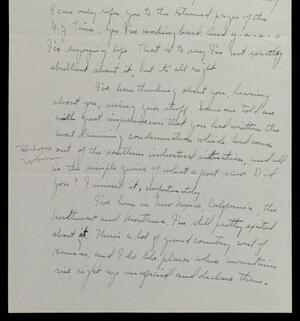 I can only refer you to the esteemed pages of the
N.Y. Times. Yes I'm working hard, and y-e-e-s
I'm enjoying life. That is to say I'm not exactly
ebullient about it, but it's all right
I've been thinking about you, hearing
about you, seeing your stuff. Someone told me
with great impressiveness that you had written the
most damning condemnation which had come
out of the southern industrial situation, and all
in the simple guise of what a poet saw. Did
you? I missed it, unfortunately.
I've been in New Mexico California, the
Northwest and Montana. I'm still pretty excited
about it. There's a lot of grand country west of
Kansas, and I do like places whose mountains
rise right up and declare them-